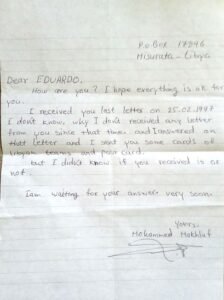 P.o Box 17846
Misurata - Libya
Dear EDUARDO,
How are you? I hope everything is ok for
you.
I received you last letter on 25.02.1997
I don't know, why I don't received any letter
from you since that time, and I answered on
that letter and I sent you some cards of
Libyan teams and post card.
but I didn't know if you received is or
not.
I am waiting for your answer very soon.
Yours,
Mohammed Makhluf